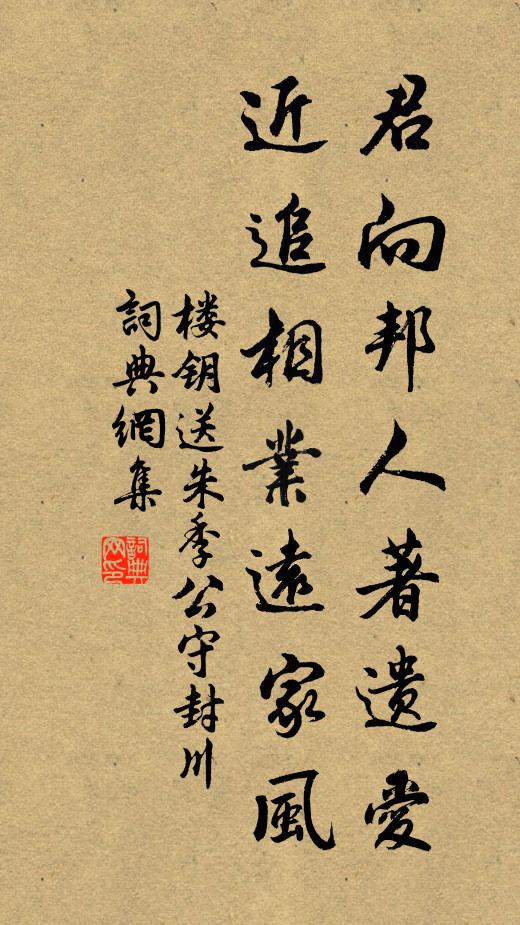 君向邦人著遗愛
近追相業遠家風
楼钥送朱季公守封川
詞典網集
詞典网印